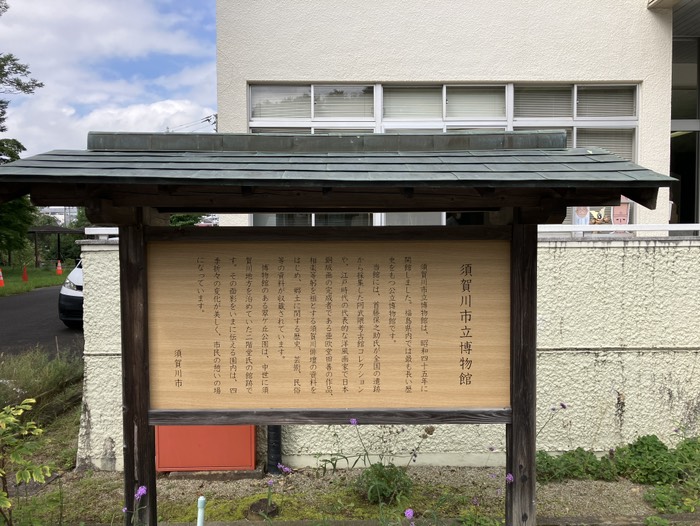 須賀川市立博物館
須賀川市立博物館は、昭和四十五年に
開館しました。福島県内では最も長い歴
史をもつ公立博物館です。
当館には、首藤保之助氏が全国の遺跡
から採集した阿武隈考古館コレクション
や、江戸時代の代表的な洋風画家で日本
銅版画の完成者である亜欧堂田善の作品、
相楽等躬を祖とする須賀川俳壇の資料を
はじめ、郷土に関する歴史、芸術、民俗
等の資料が収蔵されています。
博物館のある翠ケ丘公園は、中世に須
賀川地方を治めていた二階堂氏の館跡で
す。その面影をいまに伝える園内は、四
季折々の変化が美しく、市民の憩いの場
になっています。
須賀川市